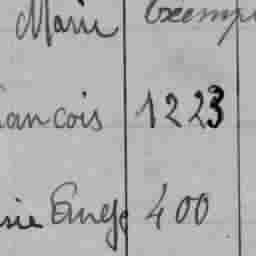 Marie Exemp
ancois 1223
ie 400